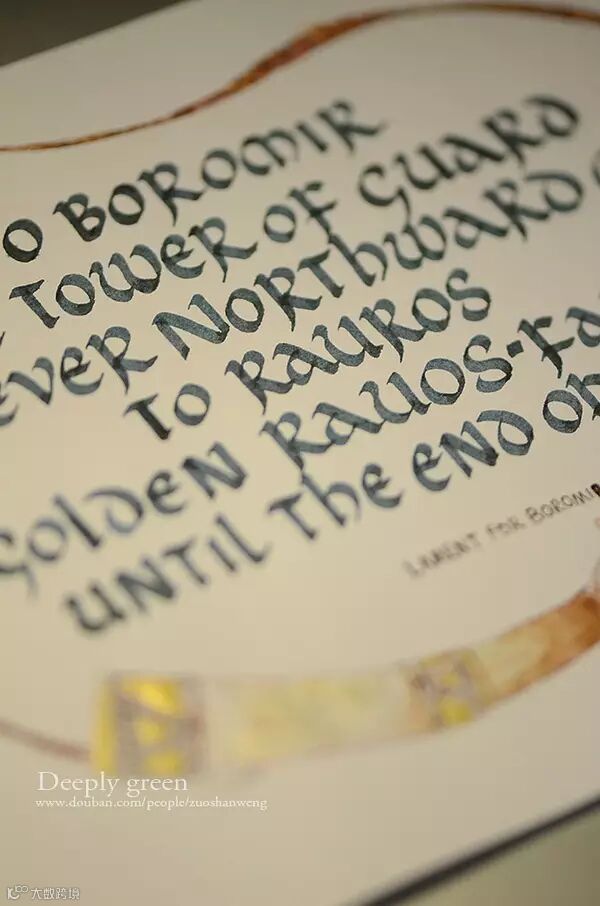 O BOROMIR
TOWER OF GUARD
EVER NORTHWARD
TO RAUROS
GOLDEN RAUOS-FA
UNTIL THE END OF
LAMENT FOR BOROMIR
Deeply green
www.douban.com/people/zuoshanweng
大数跨境